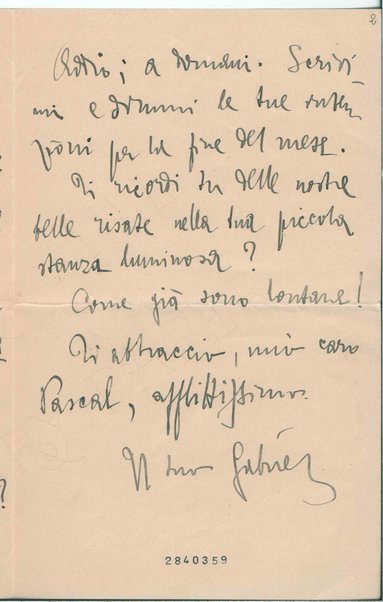 2
Addio; a domani. Scrivi-
mi e dimmi le tue inten-
zioni per la fine del mese.
Ti ricordi tu delle nostre
belle risate nella tua piccola
stanza luminosa?
Come già sono lontane!
Ti abbraccio, mio caro
Pascal, afflittissimo.
Il tuo Gabriel
2840359
?